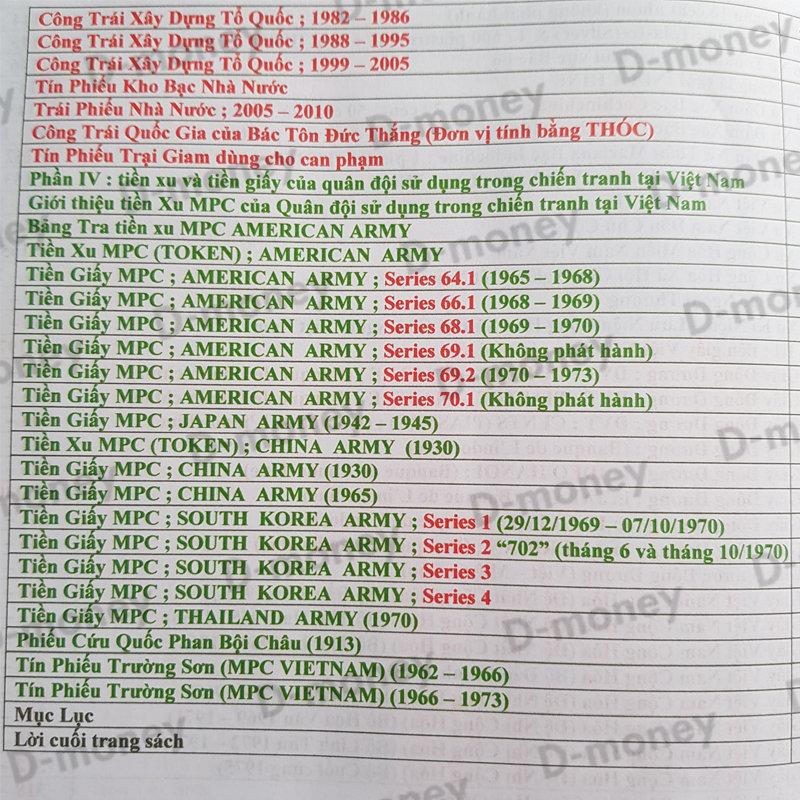 Công Trái Xây Dựng Tổ Quốc ; 1982 – 1986
Công Trái Xây Dựng Tổ Quốc ; 1988 – 1995
Công Trái Xây Dựng Tổ Quốc ; 1999 – 2005
Tín Phiếu Kho Bạc Nhà Nước
Trái Phiếu Nhà Nước ; 2005 – 2010
Công Trái Quốc Gia của Bác Tôn Đức Thắng (Đơn vị tính bằng THÓC)
Tín Phiếu Trại Giam dùng cho can phạm
Phần IV : tiền xu và tiền giấy của quân đội sử dụng trong chiến tranh tại Việt Nam
Giới thiệu tiền Xu MPC của Quân đội sử dụng trong chiến tranh tại Việt Nam
Bảng Tra tiền xu MPC AMERICAN ARMY
Tiền Xu MPC (TOKEN) ; AMERICAN ARMY
Tiền Giấy MPC ; AMERICAN ARMY ; Series 64.1 (1965 – 1968)
Tiền Giấy MPC ; AMERICAN ARMY ; Series 66.1 (1968 – 1969)
Tiền Giấy MPC ; AMERICAN ARMY ; Series 68.1 (1969 – 1970)
Tiền Giấy MPC ; AMERICAN ARMY ; Series 69.1 (Không phát hành)
Tiền Giấy MPC ; AMERICAN ARMY ; Series 69.2 (1970 – 1973)
Tiền Giấy MPC ; AMERICAN ARMY ; Series 70.1 (Không phát hành)
Tiền Giấy MPC ; JAPAN ARMY (1942 – 1945)
Tiền Xu MPC (TOKEN) ; CHINA ARMY (1930)
Tiền Giấy MPC ; CHINA ARMY (1930)
Tiền Giấy MPC ; CHINA ARMY (1965)
Tiền Giấy MPC ; SOUTH KOREA ARMY ; Series 1 (29/12/1969 – 07/10/1970)
Tiền Giấy MPC ; SOUTH KOREA ARMY ; Series 2 “702” (tháng 6 và tháng 10/1970)
Tiền Giấy MPC ; SOUTH KOREA ARMY ; Series 3
Tiền Giấy MPC ; SOUTH KOREA ARMY ; Series 4
Tiền Giấy MPC ; THAILAND ARMY (1970)
Phiếu Cứu Quốc Phan Bội Châu (1913)
Tín Phiếu Trường Sơn (MPC VIETNAM) (1962 – 1966)
Tín Phiếu Trường Sơn (MPC VIETNAM) (1966 – 1973)
Mục Lục
Lời cuối trang sách
D-money